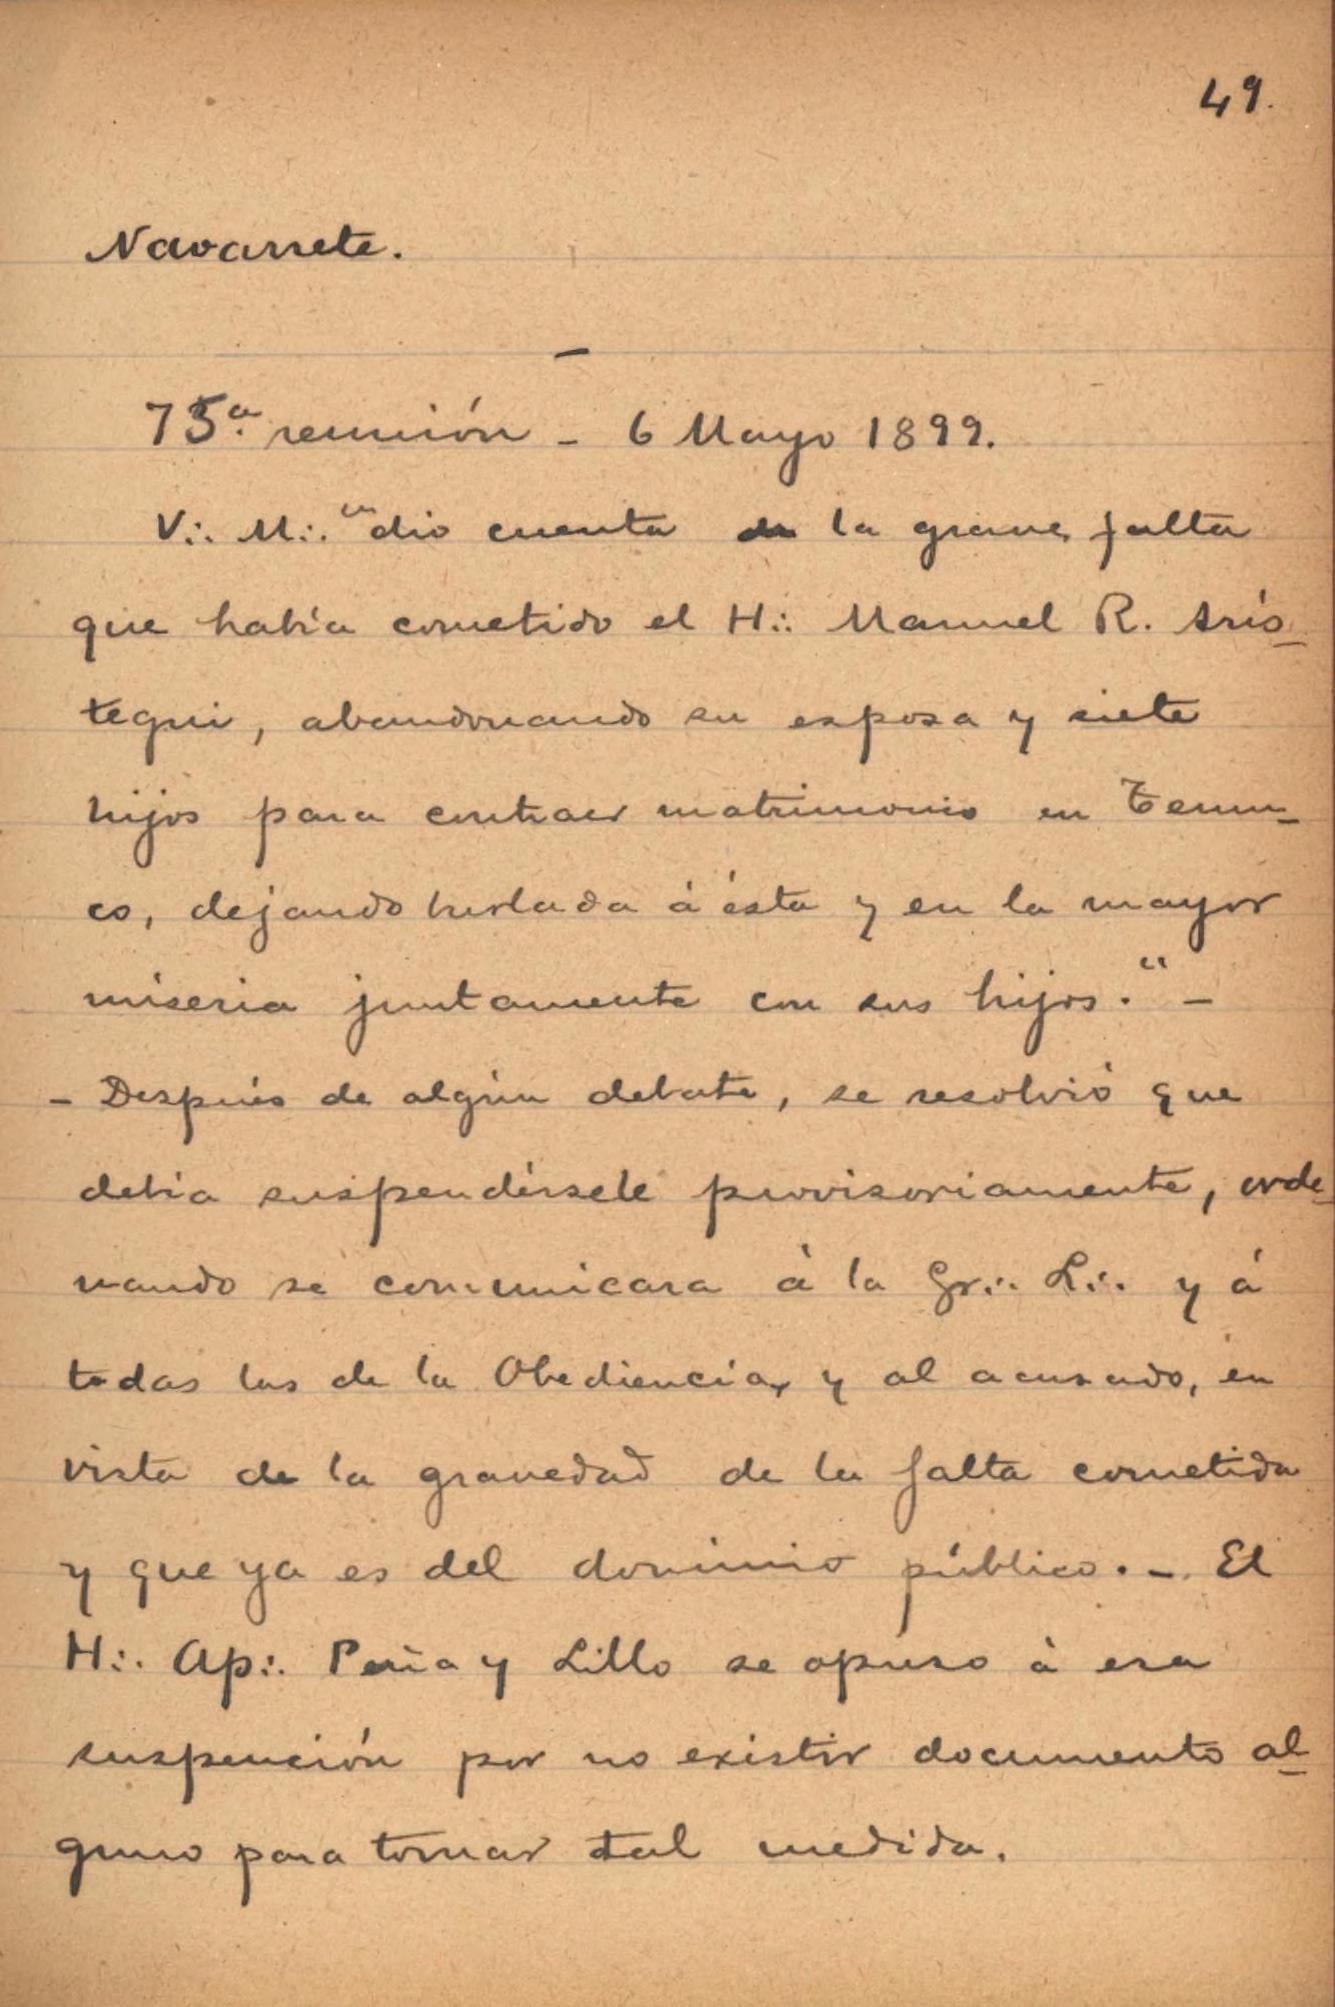 49.
Navarrete.
—
75ª. reunión - 6 Mayo 1899.
V∴ M∴ "dio cuenta de la grave falta
que había cometido el H∴ Manuel R. Arís-
tegui, abandonando su esposa y siete
hijos para contraer matrimonio en Temu-
co, dejando burlada á ésta y en la mayor
miseria juntamente con sus hijos." -
- Después de algún debate, se resolvió que
debía suspendérsele provisoriamente, orde-
nando se comunicara á la Gr∴ L∴ y á
todas las de la Obediencia, y al acusado, en
vista de la gravedad de la falta cometida
y que ya es del dominio público. -. El
H∴ Ap∴ Peña y Lillo se opuso á esa
suspención por no existir documento al-
guno para tomar tal medida.